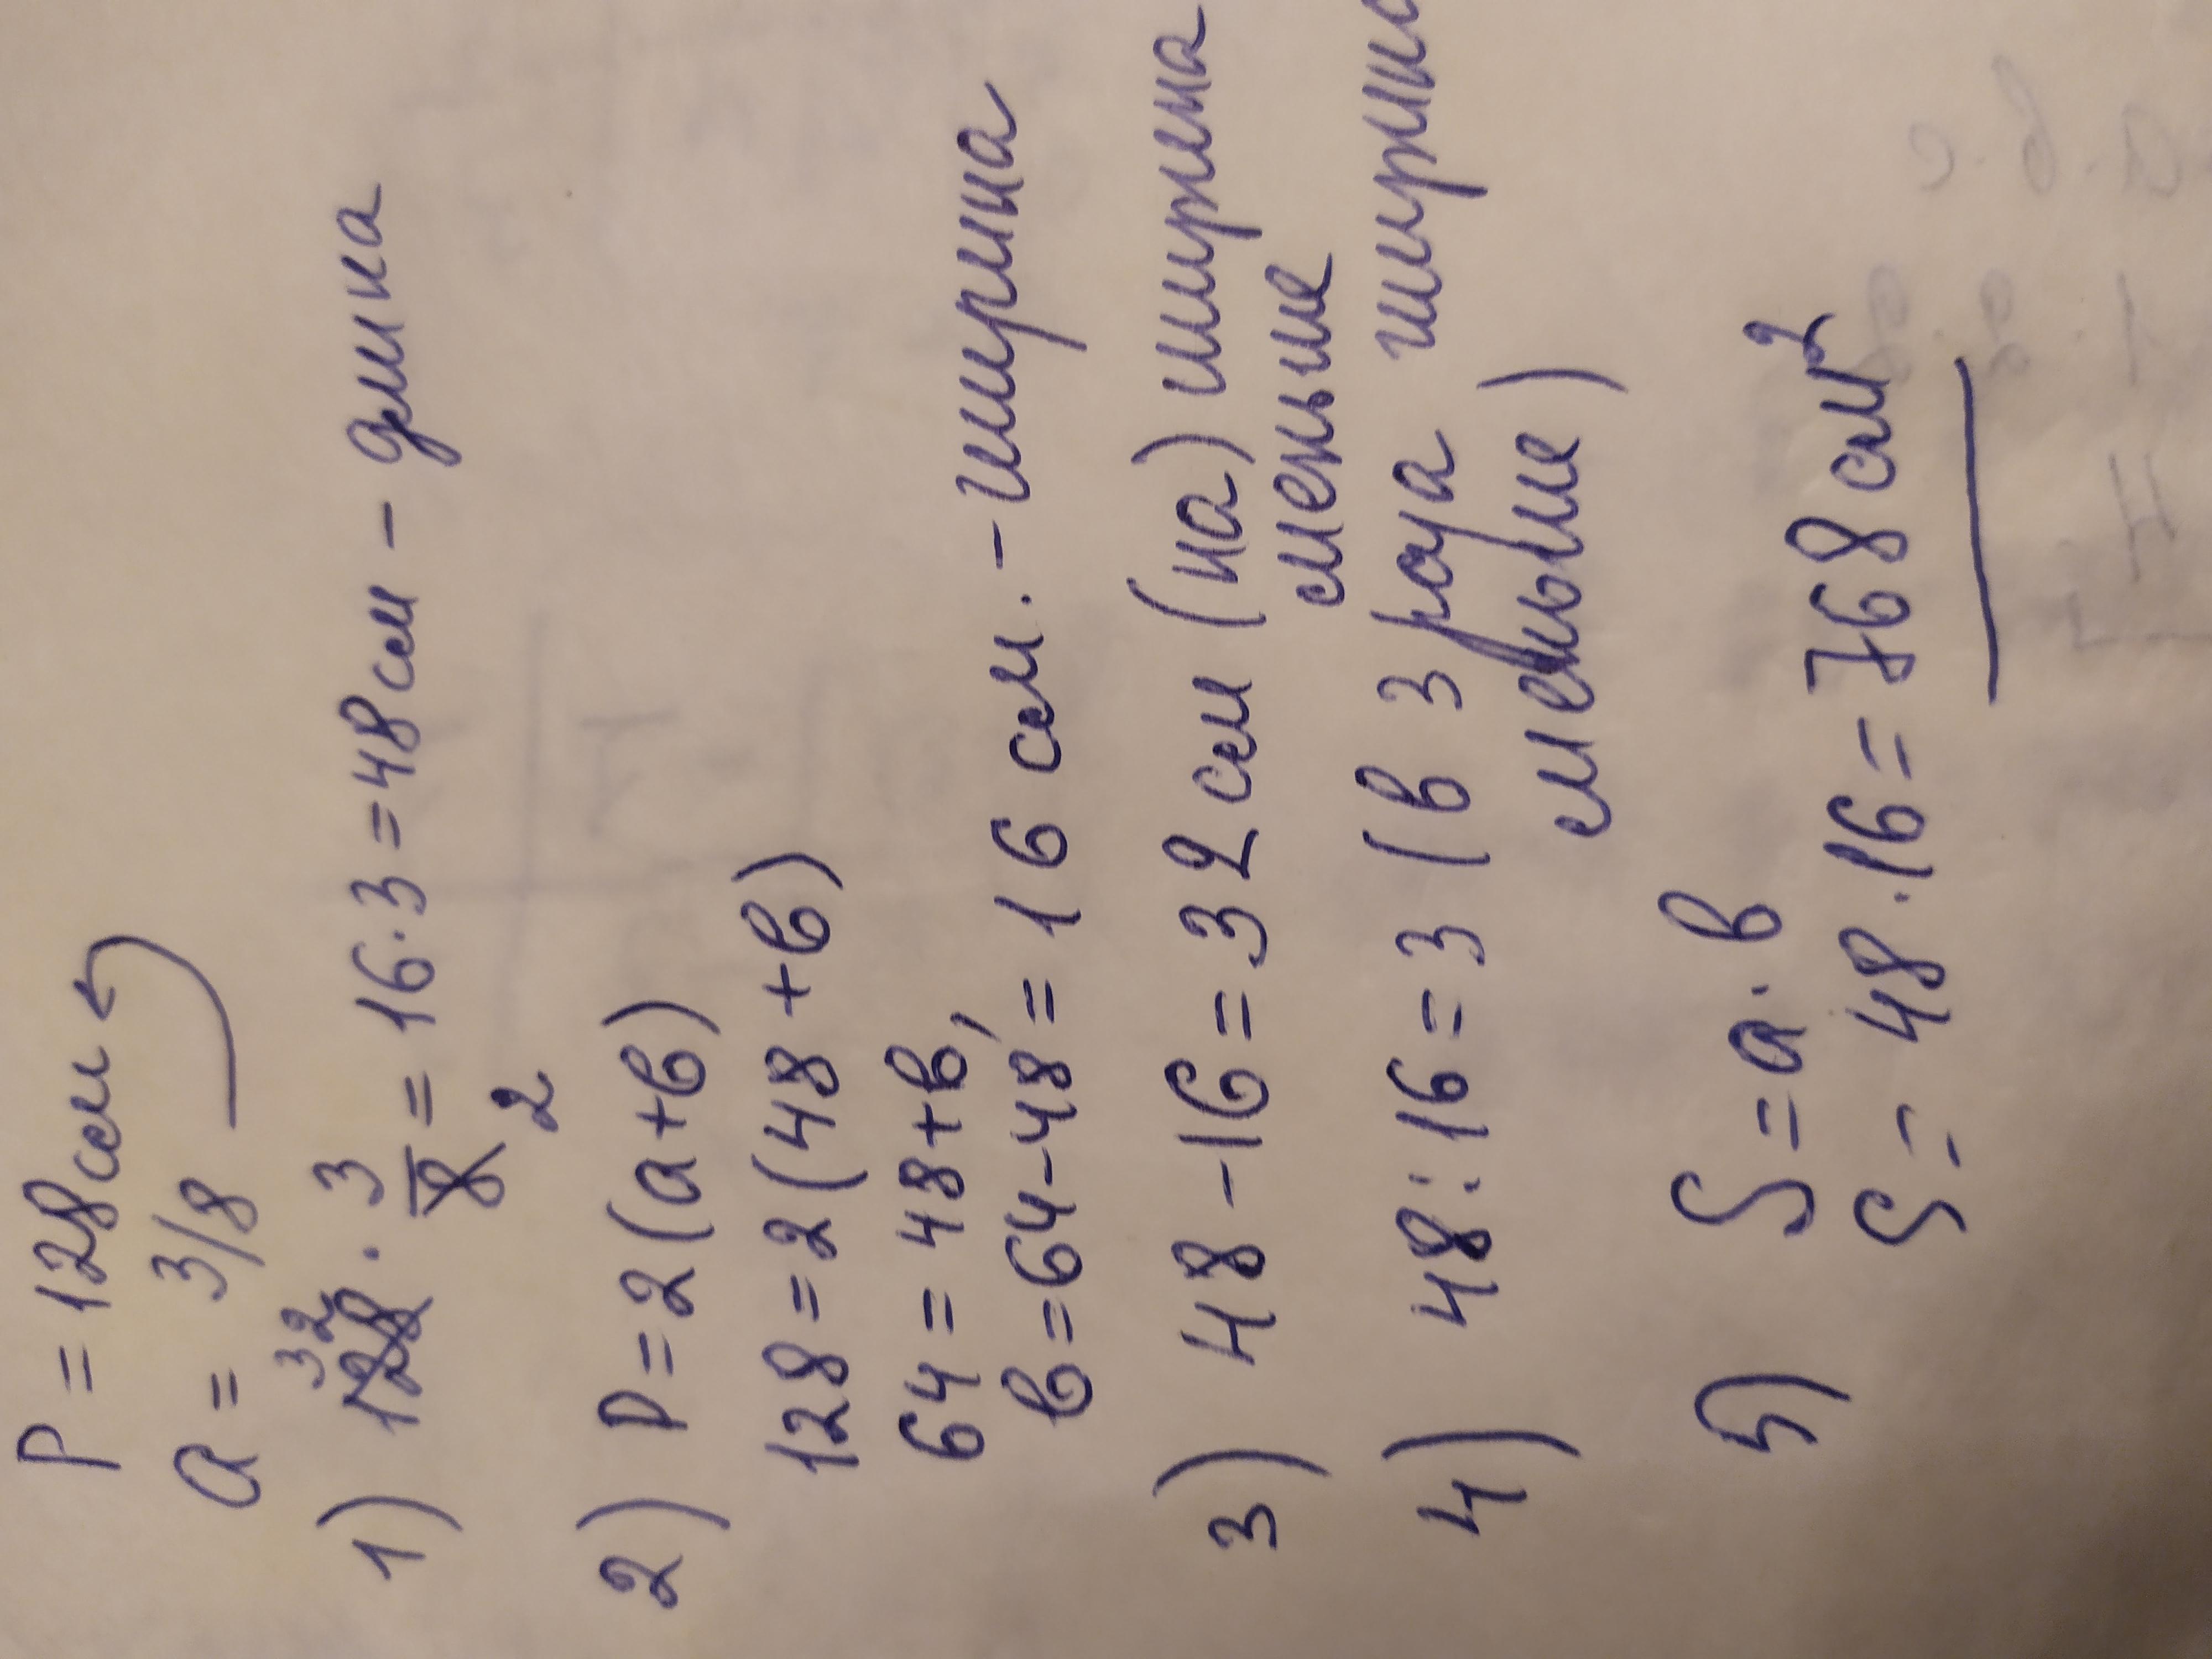 P = 128 см
a = 3/8
32
1) 128 · 3/8 = 16 · 3 = 48 см - длина
2
2) P = 2(a+b)
128 = 2(48 + b)
64 = 48 + b,
b = 64 - 48 = 16 см. - ширина
3) 48 - 16 = 32 см (на) ширина
меньше
4) 48 : 16 = 3 (в 3 раза
меньше)
5) S = a · b
S = 48 · 16 = 768 см²